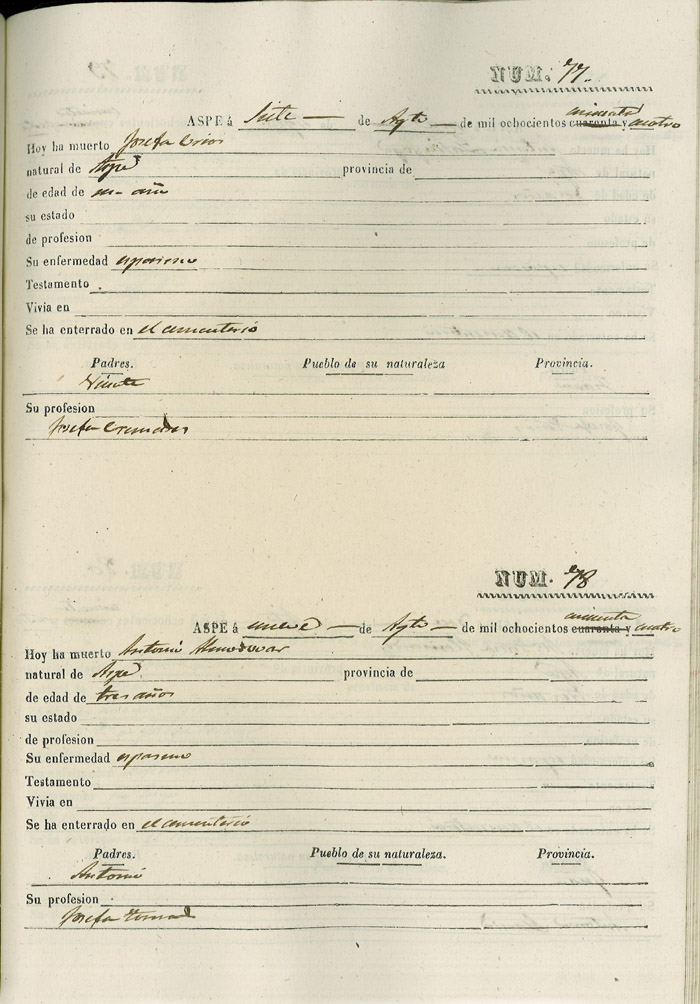 NUM. 77.
cincuenta
ASPE á Siete de Agto de mil ochocientos cuarenta y cuatro
Hoy ha muerto Josefa
natural de Aspe provincia de
de edad de un año
su estado
de profesion
Su enfermedad espasmo
Testamento
Vivia en
Se ha enterrado en el cementerio
Padres. Pueblo de su naturaleza Provincia.
Vicente
Su profesion
Josefa Cremades
NUM. 78
cincuenta
ASPE á nueve de Agto de mil ochocientos cuarenta y cuatro
Hoy ha muerto Antonio Almodovar
natural de Aspe provincia de
de edad de tres años
su estado
de profesion
Su enfermedad espasmo
Testamento
Vivia en
Se ha enterrado en el cementerio
Padres. Pueblo de su naturaleza. Provincia.
Antonio
Su profesion
Josefa